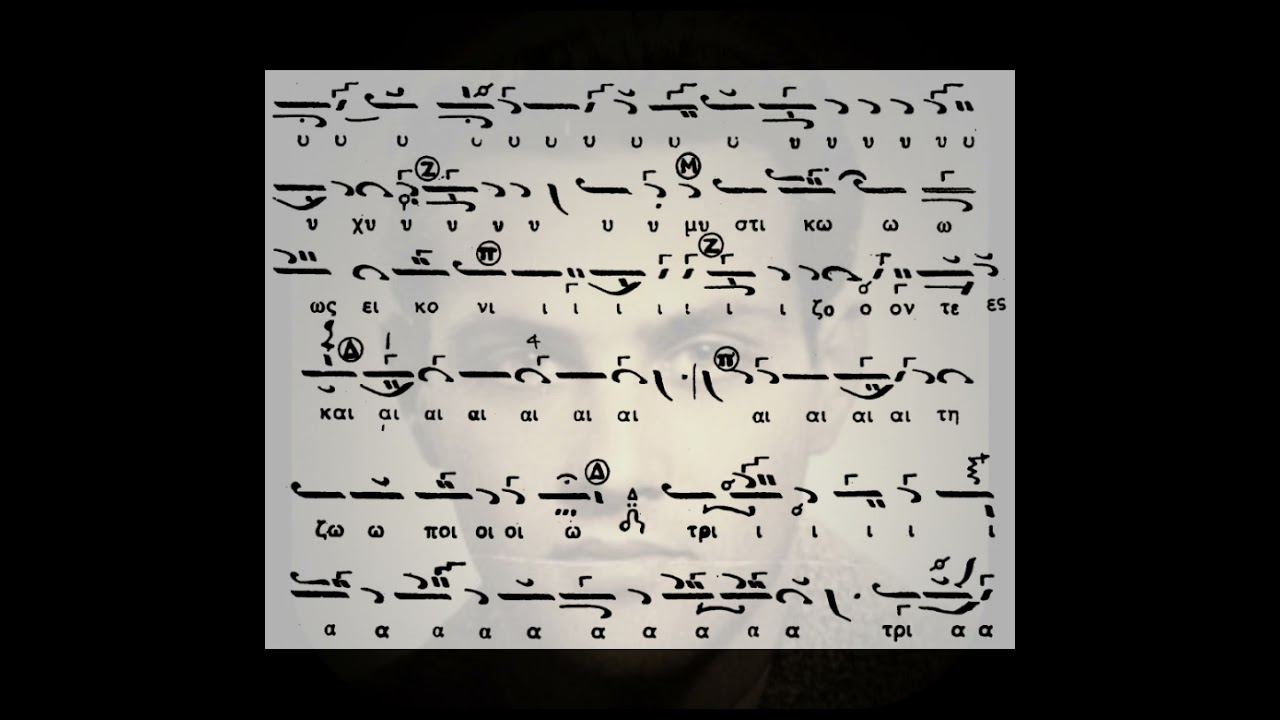 υ υ υ υ υ υ υ υ υ υ υ υ υ υ υ υ
Ζ Μ
υ χυ υ υ υ υ υ υ μυ στι κω ω ω
π Ζ
ως ει κο νι ι ι ι ι ι ι ι ζο ο ον τε ες
Δ 4 π
και αι αι αι αι αι αι αι αι αι αι τη
Δ
ζω ω ποι οι οι ω Δ τρι ι ι ι ι ι
α α α α α α α α α α τρι α α